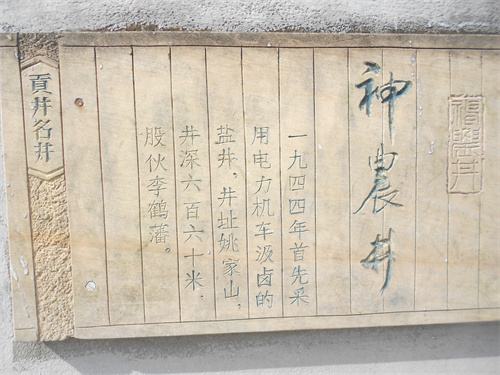 神農井
一九四四年首先采
用电力机车汲卤的
盐井，井址姚家山，
井深六百六十米，
股伙李鹤藩。
貢井名井